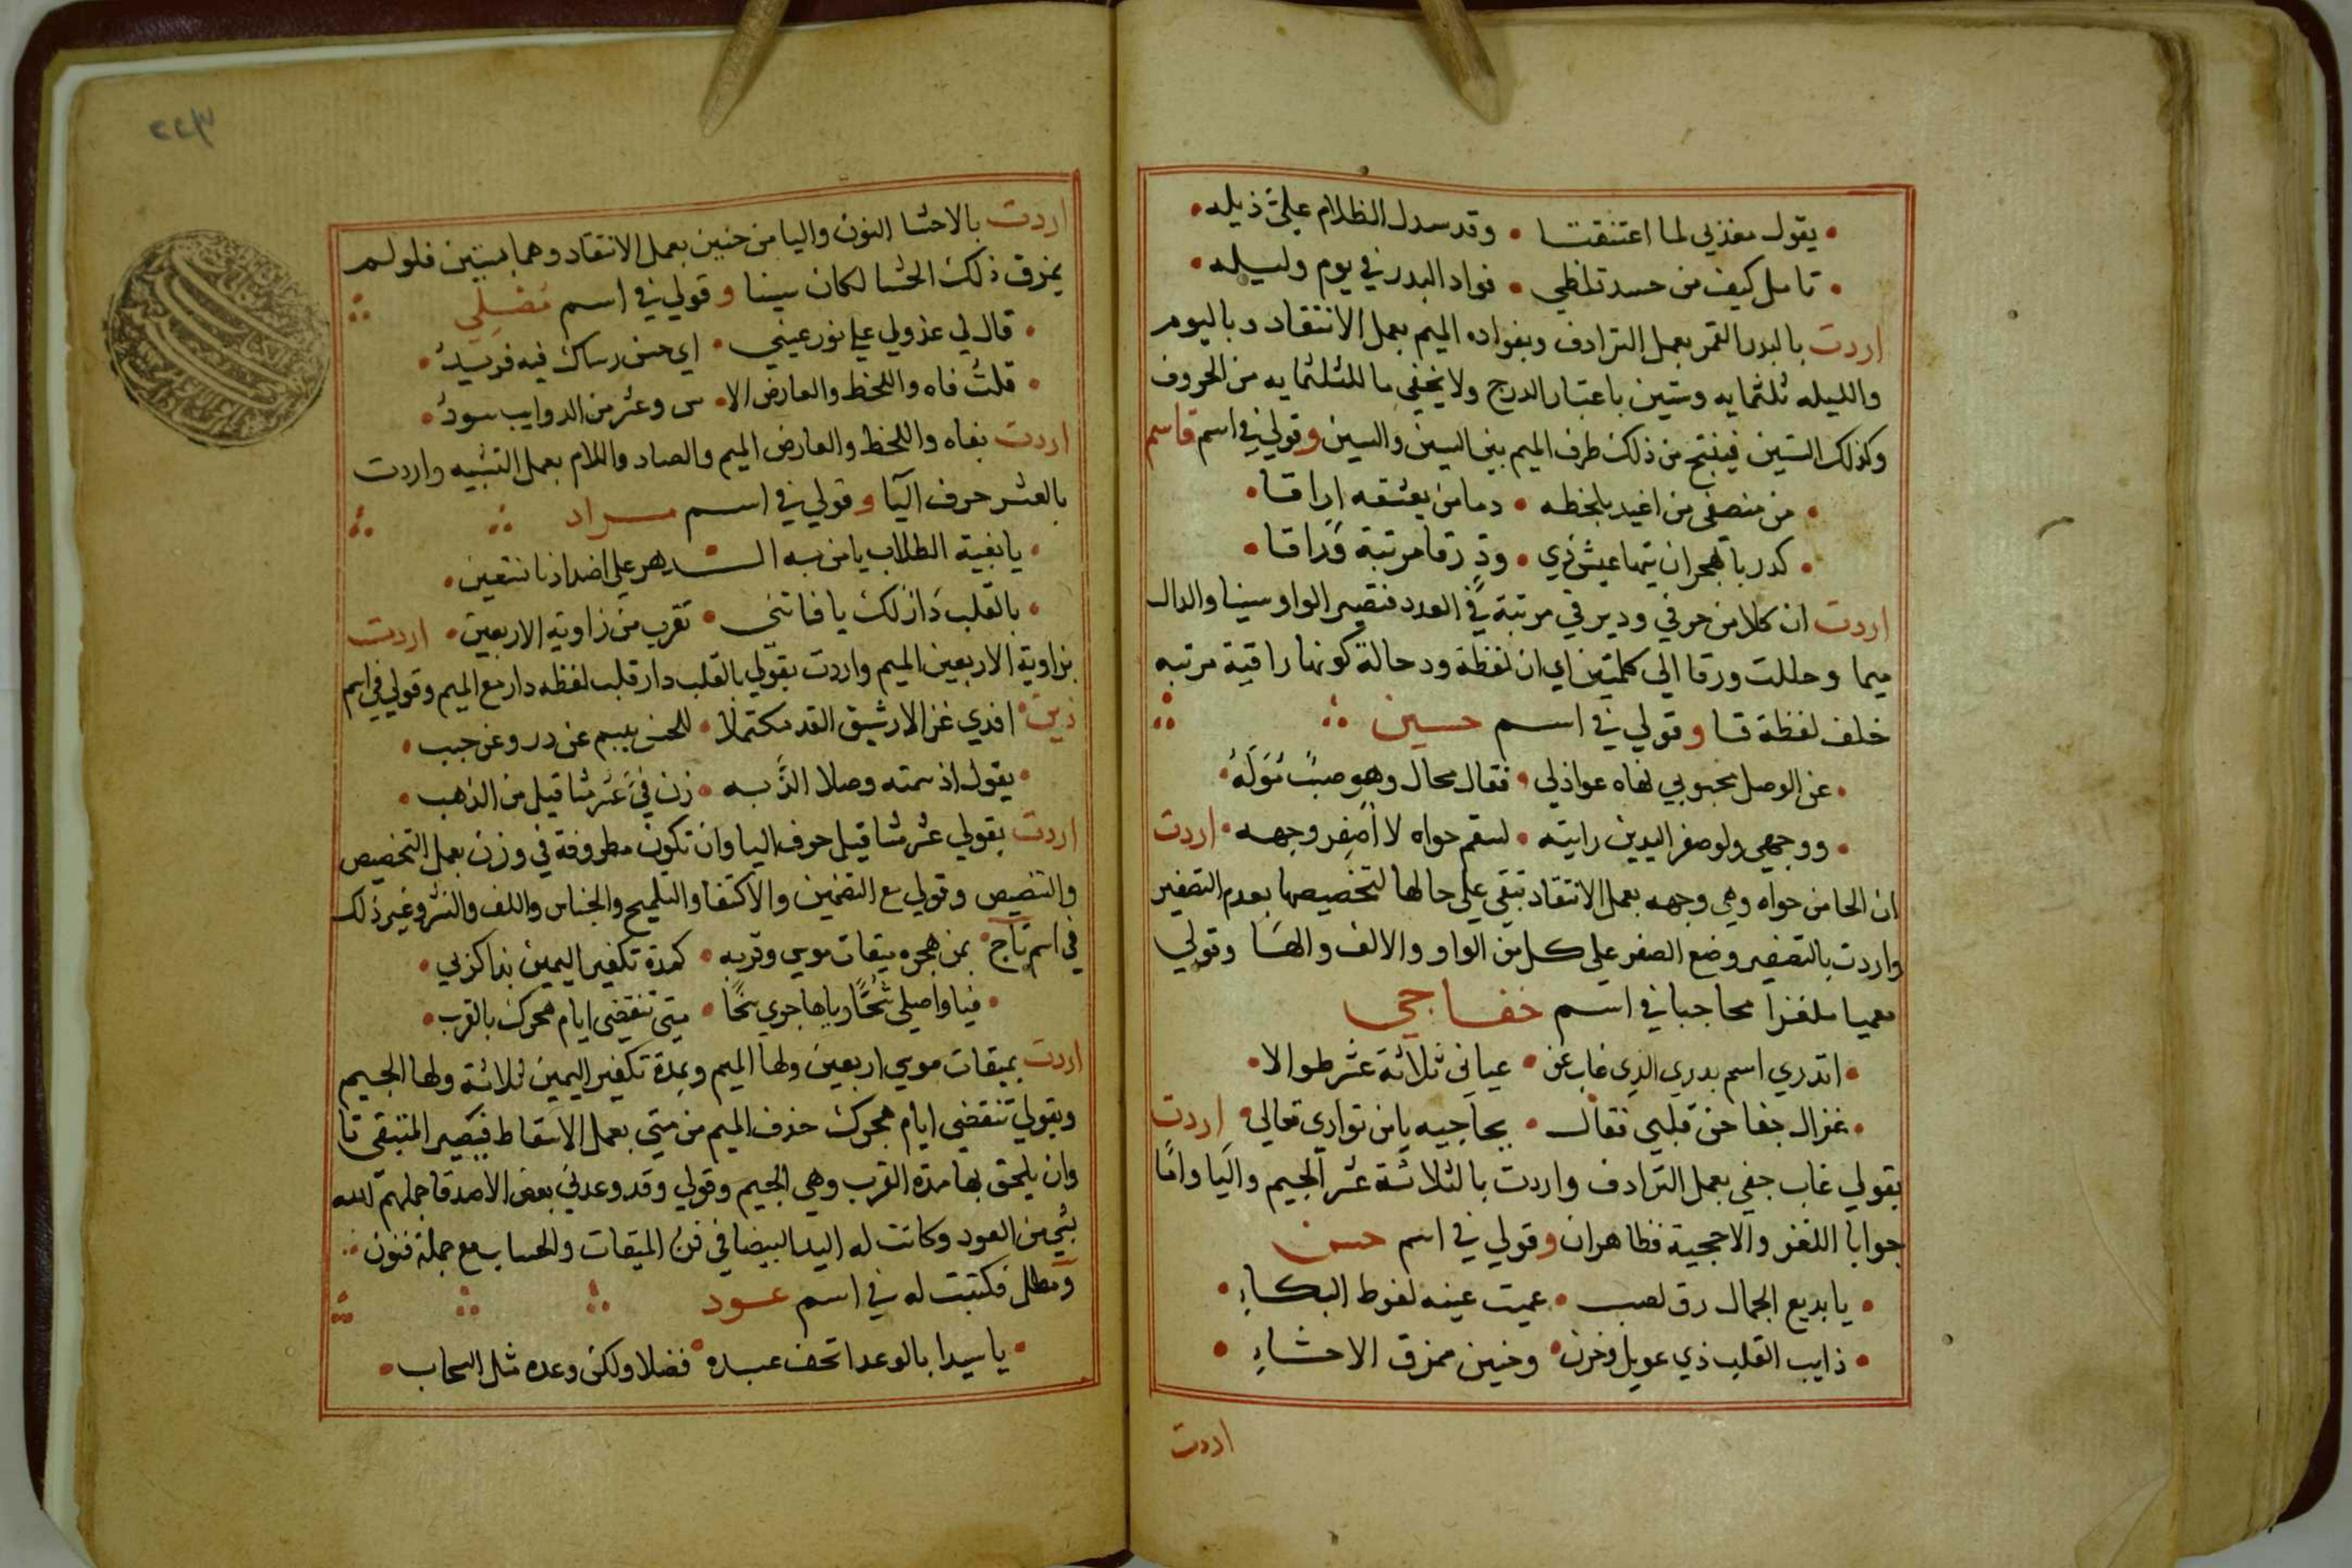 يقول معذبي لما اعتنقتنا • وقد سدل الظلام علىّ ذيله •
• تامل كيف من حسد تلظي • فواد البدر في يوم وليله •
اردت بالبدر القمر بعمل الترادف وبفواده الميم بعمل الانتقاد وباليوم
والليله ثلثمايه وستين باعتبار الدرج ولا يخفي ما للثلثمايه من الحروف
وكذلك الستين فينتج من ذلك طرف الميم بين السين والسين وقولي في اسم قاسم
• من منصفي من اغيد بلحظه • دما من يعشقه اراقا •
• كدر بالهجران تيها عيش ذي • ودٍّ رقا مرتبة وراقا •
اردت ان كلا من حرفي ود يرقي مرتبة في العدد فتصير الواو سينا والدال
ميما وحللت ورقا الي كلمتين اي ان لفظة ود حالة كونها راقية مرتبه
خلف لفظة قا وقولي في اسم حسين
• عن الوصل محبوبي نهاه عواذلي • فقال محال وهو صبٌّ مُوَلَّهُ •
• ووجهي ولو صفر اليدين رايته • لسقم حواه لا اصفر وجهه • اردت
ان الحا من حواه وهي وجهه بعمل الانتقاد تبقي علي حالها لتخصيصها بعدم التصفير
واردت بالتصفير وضع الصفر علي كل من الواو والالف والها وقولي
معميا ملغزا محاجيا في اسم خفاجي
• اتدري اسم بدري الذي غاب عن • عياني ثلاثة عشر طوالا •
• غزال جفا حن قلبي فقال • بحاجيه يا من تواري تعالي • اردت
بقولي غاب جفي بعمل الترادف واردت بالثلاثة عشر الجيم واليا واما
جوابا اللغز والاحجية فظاهران وقولي في اسم حسن
• يا بديع الجمال رق لصب • عميت عينه لفرط البكاءِ •
• ذايب القلب ذي عويل وحزن • وحنين ممزق الاحشاءِ •
اردت
اردت بالاحشا النون واليا من حنين بعمل الانتقاد وهما بستين فلولم
يمزق ذلك الحشا لكان سينا وقولي في اسم مُصْلِي
• قال لي عذولي علي نور عيني • اي حسن رساك فيه فريدُ •
• قلتُ فاه واللحظ والعارض الا • س وعشر من الدوايب سودُ •
اردت بفاه واللحظ والعارض الميم والصاد واللام بعمل التشبيه واردت
بالعشر حرف اليا وقولي في اسم مراد
• يا بغية الطلاب يا من به الـدهر علي اضدادنا نتعين •
• بالقلب دَارَلك يا فاتني • تقرب من زاوية الاربعين • اردت
بزاوية الاربعين الميم واردت بقولي بالقلب دار قلب لفظه دار مع الميم وقولي في اسم
زين • افدي غزالا رشيق القد مكتملا • للحسن يبسم عن در وعن حبب •
• يقول اذ سمته وصلا الذّ به • زن فيَّ عشر مثاقيل من الذهب •
اردت بقولي عشر مثاقيل حرف اليا وان تكون مظروفة في وزن بعمل التخصيص
والتنصيص وقولي مع التضمين والاكتفا والتلميح والجناس واللف والنشر وغير ذلك
في اسم تاج • بمن هجره ميقات موسي وقربه • كمدة تكفير اليمين بذا كزبي •
• فيا واصلي شُحًّا ويا هاجري سخًا • متي تنقضي ايام هجرك بالقرب •
اردت بميقات موسي اربعين ولها الميم وبمدة تكفير اليمين ثلاثة ولها الجيم
وبقولي تنقضي ايام هجرك حذف الميم من متي بعمل الاسقاط فيصير المتبقي تا
وان يلحق بها مدة القرب وهي الجيم وقولي وقد وعدني بعض الاصدقا جملهم الله
بشي من العود وكانت له اليد البيضا في فن الميقات والحساب مع جملة فنون
ومطل فكتبت له في اسم عود
• يا سيدا بالوعد اتحف عبده • فضلا ولكن وعده مثل السحاب •